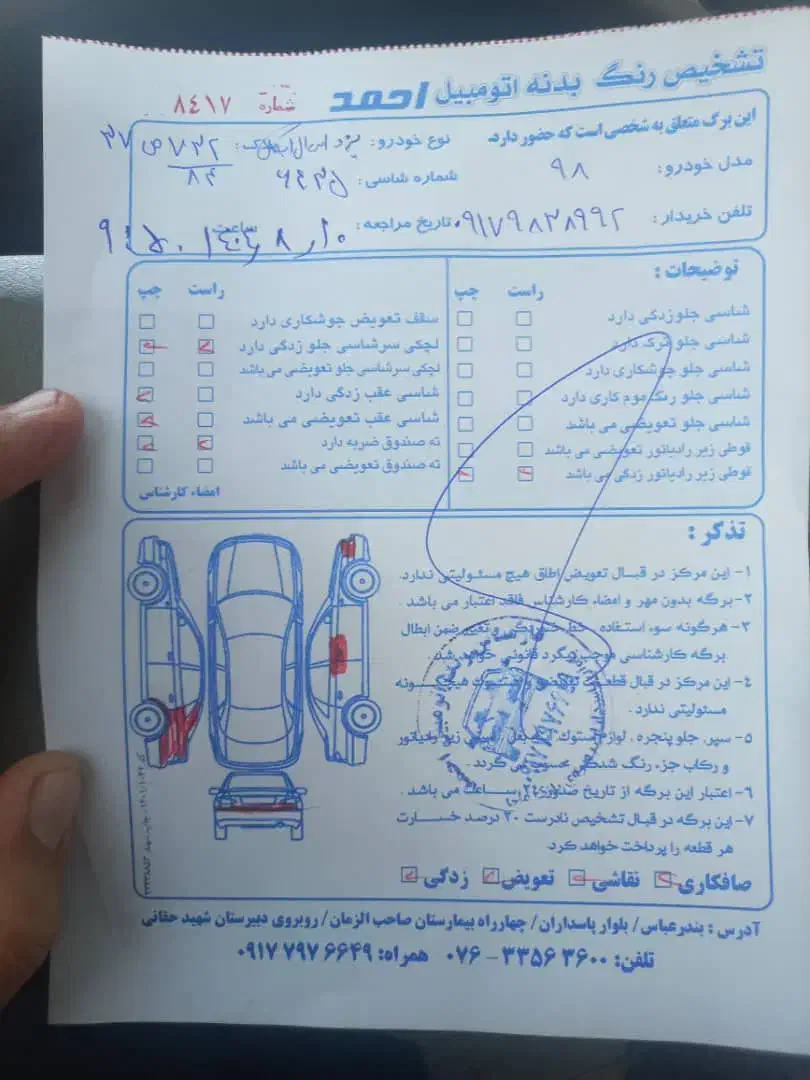 تشخیص رنگ بدنه اتومبیل احمد
شماره ۸۴۱۷
این برگ متعلق به شخصی است که حضور دارد.
نوع خودرو:
پلاک: ۷۳۲
۸۴
مدل خودرو: ۹۸
شماره شاسی:
تلفن خریدار: ۰۹۱۷۹۸۳۸۹۹۲
تاریخ مراجعه:
ساعت
توضیحات :
راست چپ
شاسی جلوزدگی دارد
شاسی جلو ترک دارد
شاسی جلو جوشکاری دارد
شاسی جلو رنگ موم کاری دارد
شاسی جلو تعویضی می باشد
قوطی زیر رادیاتور تعویضی می باشد
قوطی زیر رادیاتور زدگی می باشد
راست چپ
سقف تعویض جوشکاری دارد
لچکی سرشاسی جلو زدگی دارد
لچکی سرشاسی جلو تعویضی می باشد
شاسی عقب زدگی دارد
شاسی عقب تعویضی می باشد
ته صندوق ضربه دارد
ته صندوق تعویضی می باشد
امضاء کارشناس
تذکر :
۱- این مرکز در قبال تعویض اطاق هیچ مسئولیتی ندارد.
۲- برگه بدون مهر و امضاء کارشناس فاقد اعتبار می باشد .
۳- هرگونه سوء استفاده ، خط خوردگی و تغییر ضمن ابطال
برگه کارشناسی موجب پیگرد قانونی خواهد شد.
۴- این مرکز در قبال قطعات تعویضی هیچگونه
مسئولیتی ندارد .
۵- سپر، جلو پنجره ، زیر رادیاتور
و رکاب جزء رنگ شدگی محسوب نمی گردد .
۶- اعتبار این برگه از تاریخ صدور ۲۴ ساعت می باشد .
۷- این برگه در قبال تشخیص نادرست ۲۰ درصد خسارت
هر قطعه را پرداخت خواهد کرد.
صافکاری نقاشی تعویض زدگی
آدرس : بندرعباس/ بلوار پاسداران/ چهارراه بیمارستان صاحب الزمان/ روبروی دبیرستان شهید حقانی
تلفن: ۳۶۰۰ ۳۳۵۶ - ۰۷۶ همراه: ۶۶۴۹ ۷۹۷ ۰۹۱۷